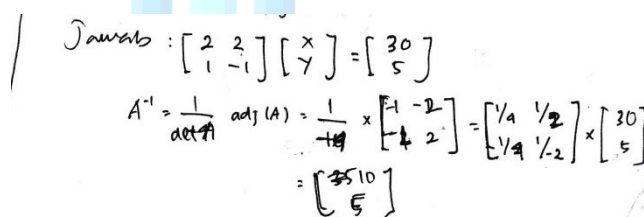 Jawab : [2 2 1 -1] [x y] = [30 5]
A⁻¹ = 1/det A adj (A) = 1/-4 × [-1 -2 -1 2] = [1/4 1/2 -1/4 1/-2] × [30 5]
= [10 5]